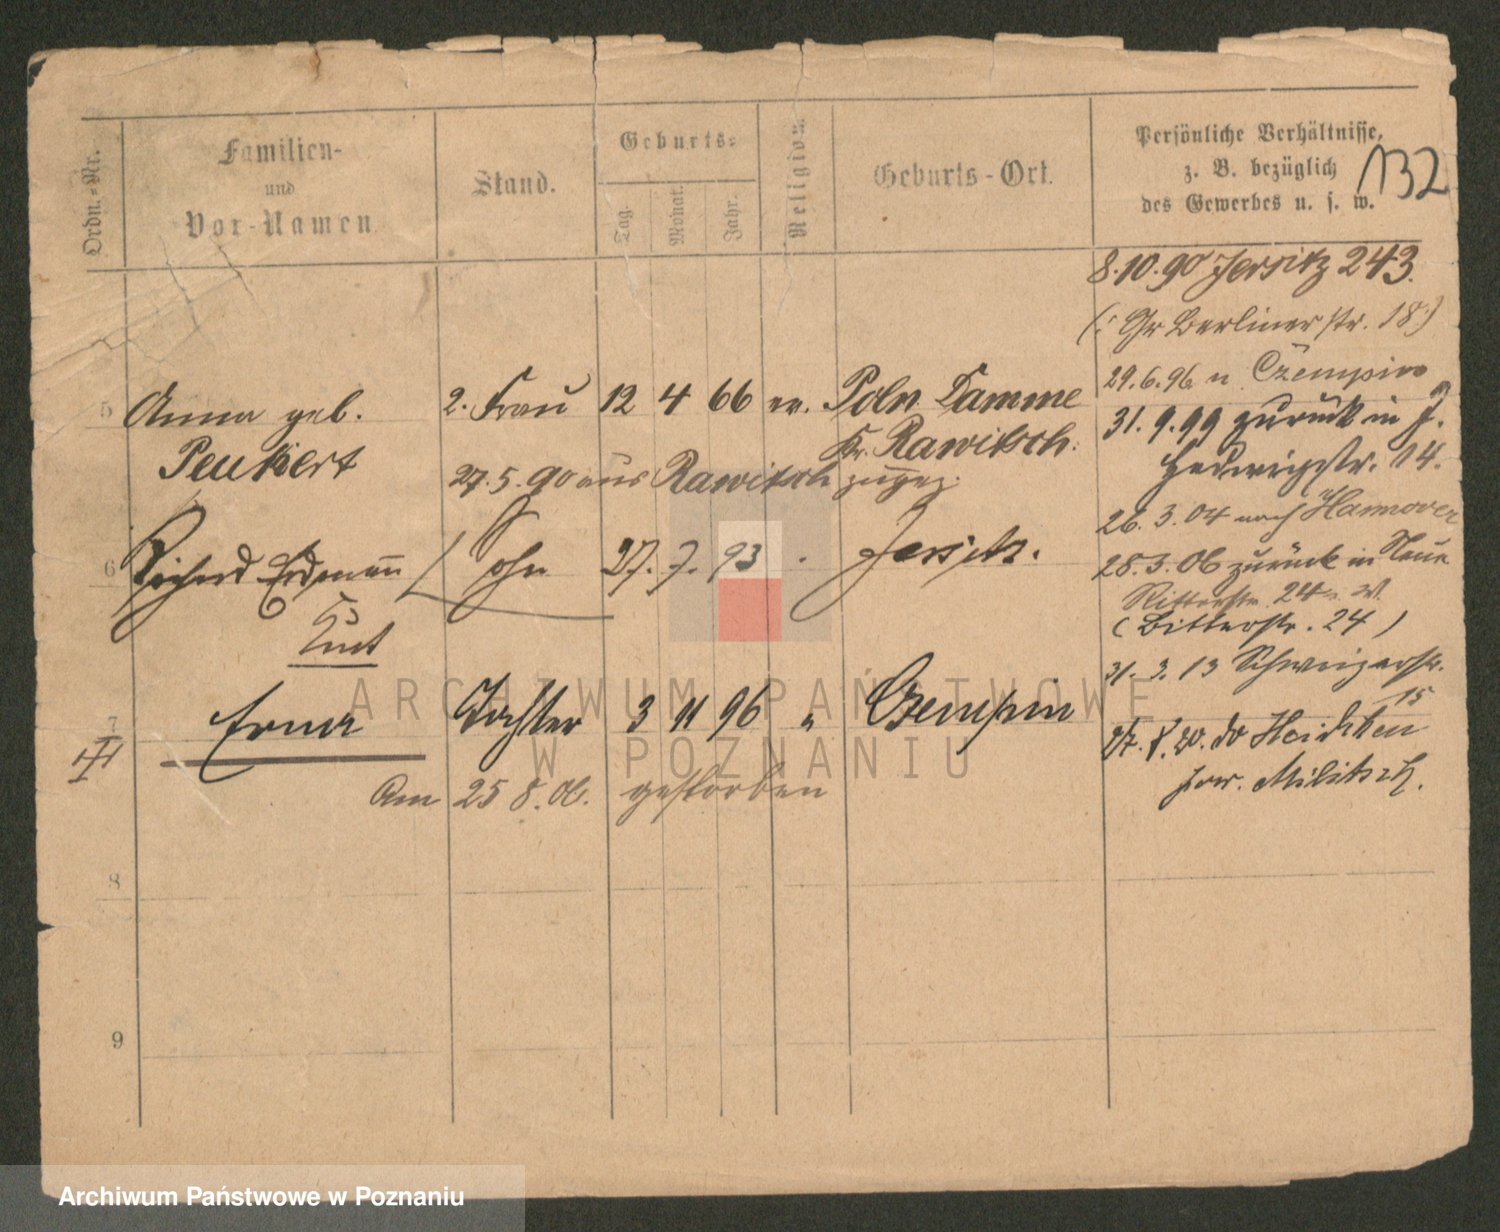 Ordn.-Nr.
Familien-
und
Vor-Namen
Stand.
Geburts-
Tag.
Monat.
Jahr.
Religion.
Geburts-Ort.
Persönliche Verhältnisse,
z. B. bezüglich
des Gewerbes u. s. w.
132
8.10.90 Jersitz 243.
(: Gr Berlinerstr. 18 :)
29.6.96 n Czempin
31.9.99 zurück in J.
Hedwigstr. 14.
26.3.04 nach Hannover
28.3.06 zurück in Neue
Ritterstr. 24a W.
(Bitterstr. 24)
31.3.13 Schweizerstr.
15
Heidchen
Militsch.
5 Anna geb. 2. Frau 12 4 66 ev. Poln Damme
Peukert Kr. Rawitsch.
27.5.90 aus Rawitsch zugez.
6 Richard Erdmann Sohn 27. 7. 93 Jersitz.
Kurt
7 Erna Tochter 3 11 96 " Czempin
Am 25 8. 06. gestorben
8
9
ARCHIWUM PAŃSTWOWE
W POZNANIU
Archiwum Państwowe w Poznaniu